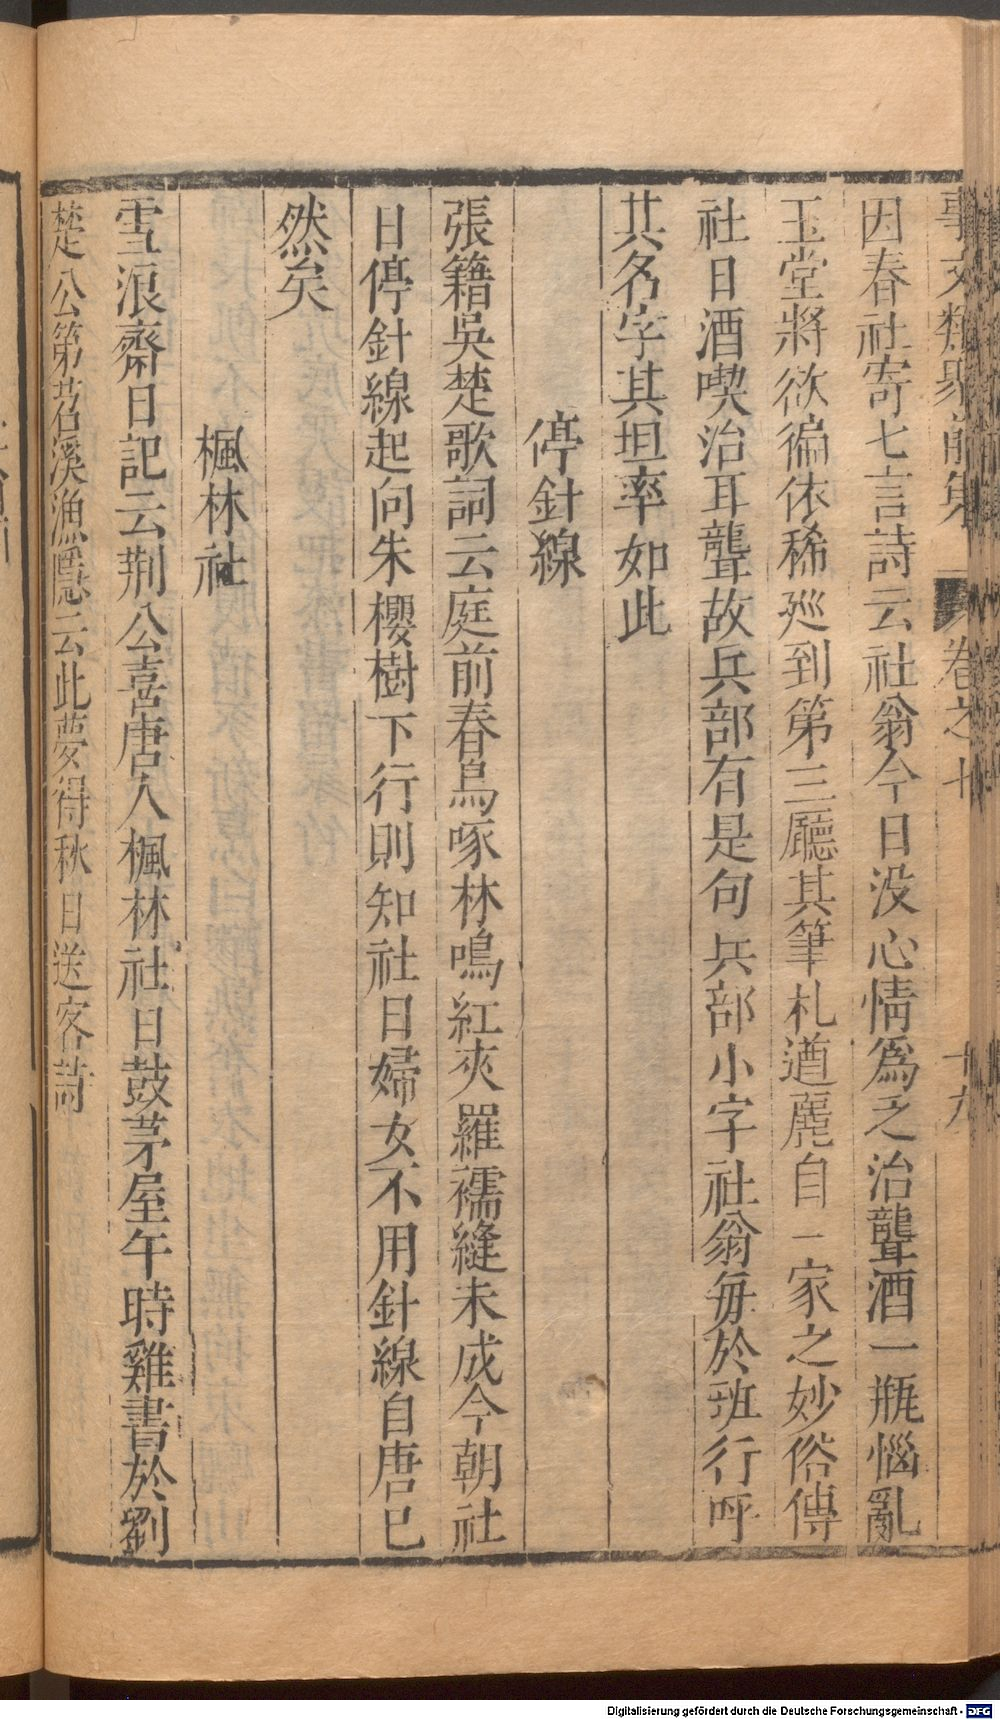 事文類聚前集 卷之七 十九
因春社寄七言詩云社翁今日没心情爲乏治聾酒一瓶惱亂
玉堂將欲徧依稀廵到第三廳其筆札遒麗自一家之妙俗傳
社日酒喫治耳聾故兵部有是句兵部小字社翁毎於班行呼
其名字其坦率如此
停針線
張籍吳楚歌詞云庭前春鳥啄林鳴紅夾羅襦縫未成今朝社
日停針線起向朱櫻樹下行則知社日婦女不用針線自唐已
然矣
楓林社
雪浪齋日記云荆公喜唐人楓林社日鼓茅屋午時雞書於劉
楚公第苕溪漁隱云此夢得秋日送客詩
Digitalisierung gefördert durch die Deutsche Forschungsgemeinschaft - DFG